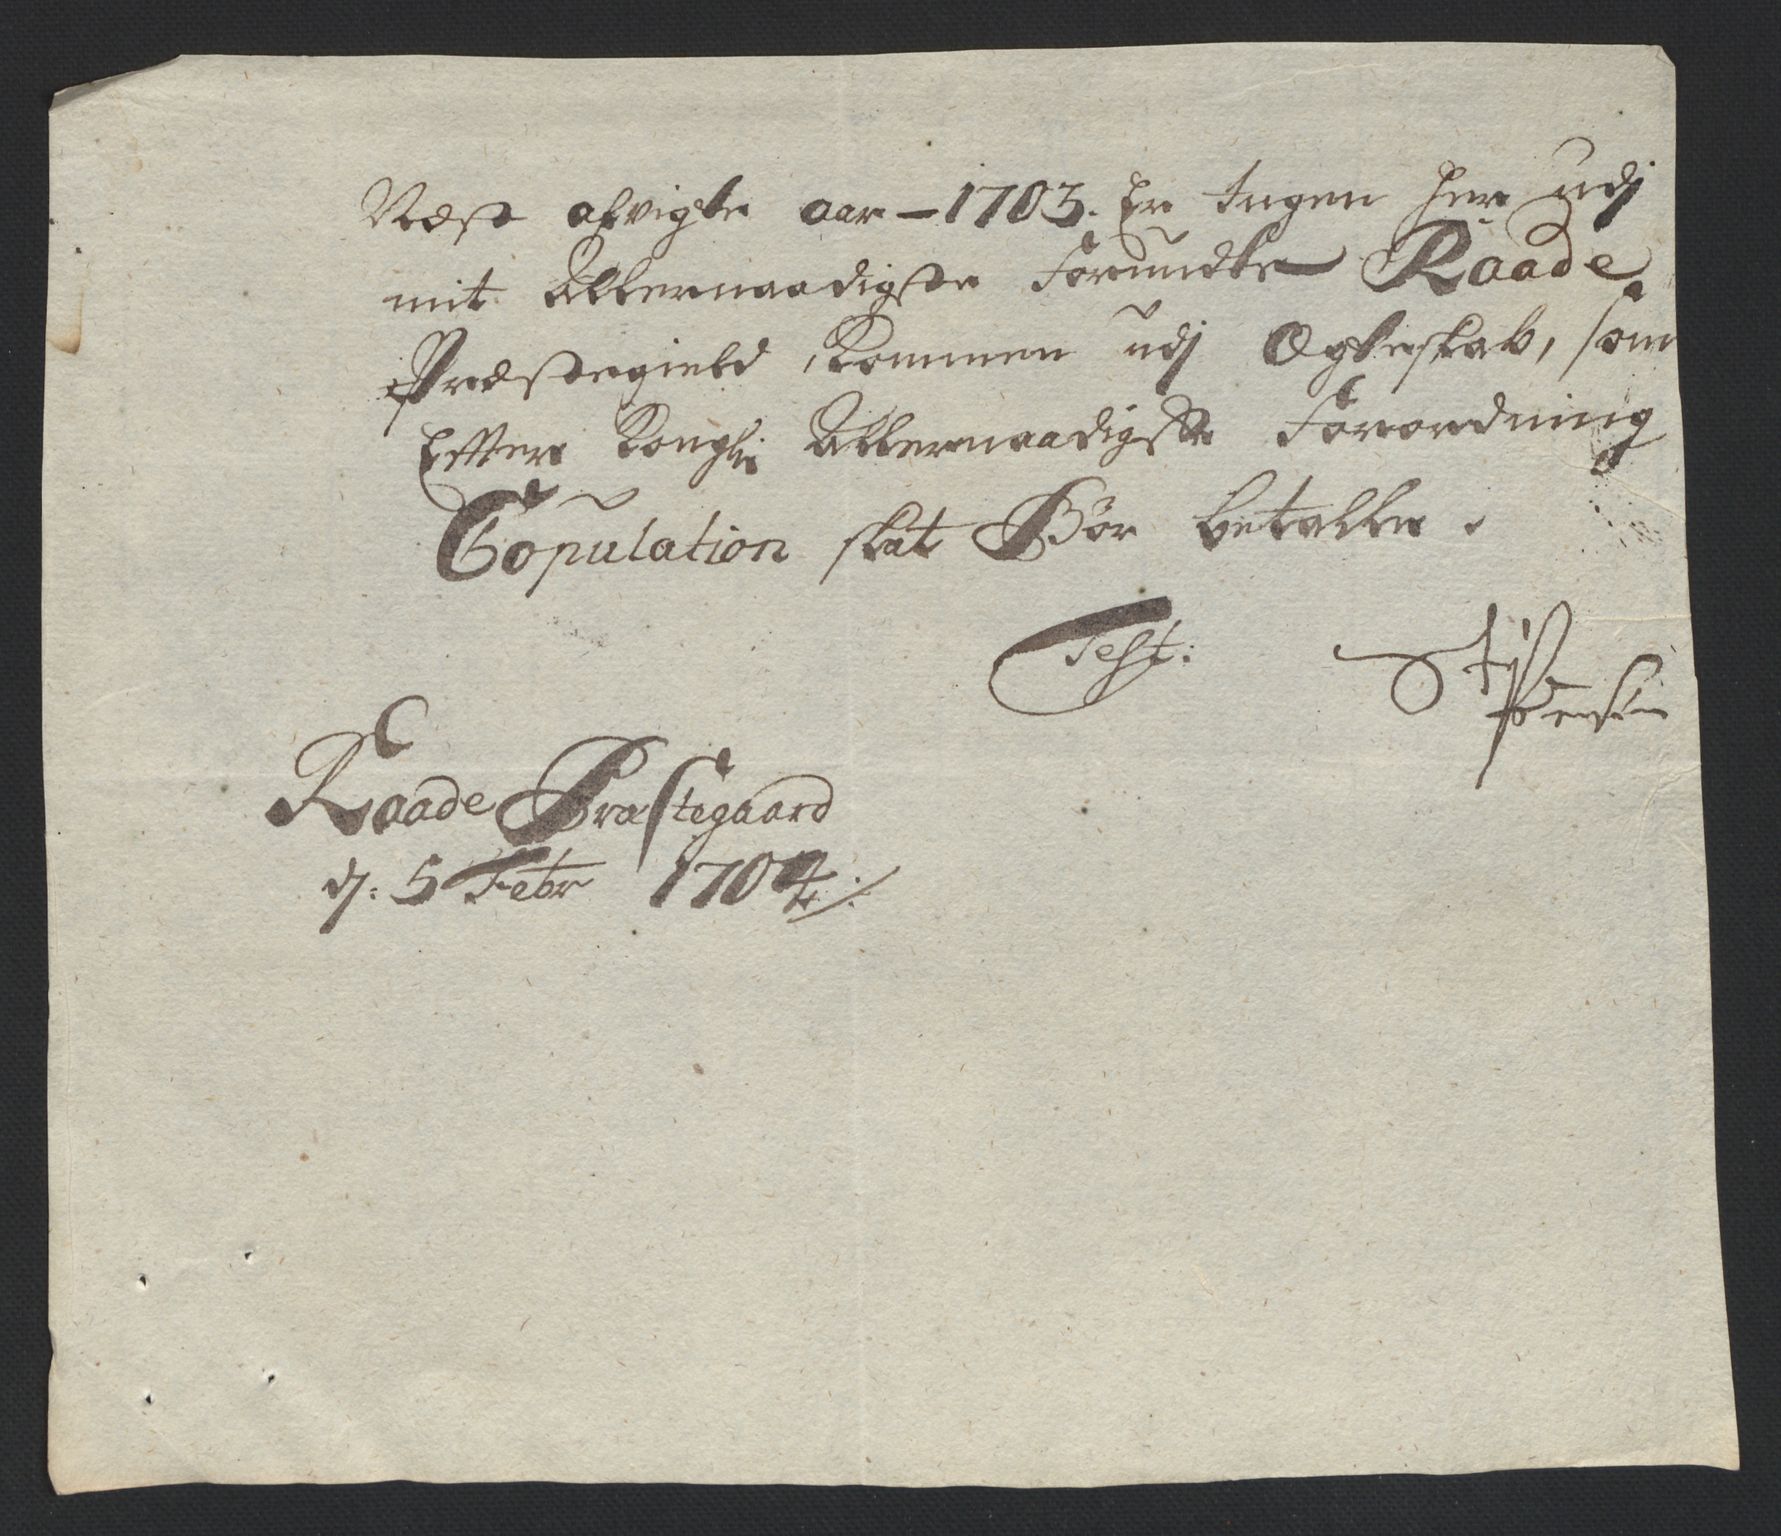 Næst afvigte aar – 1703. Er Ingen her udj
mit Allernaadigste Forundte Raade
Præstegield, kommen udj Ægteskab, som
Efter Kongl: Allernaadigste Forordning
Copulation skat Bør betalle.
Test:
Raade Præstegaard
dj: 5 Febr 1704